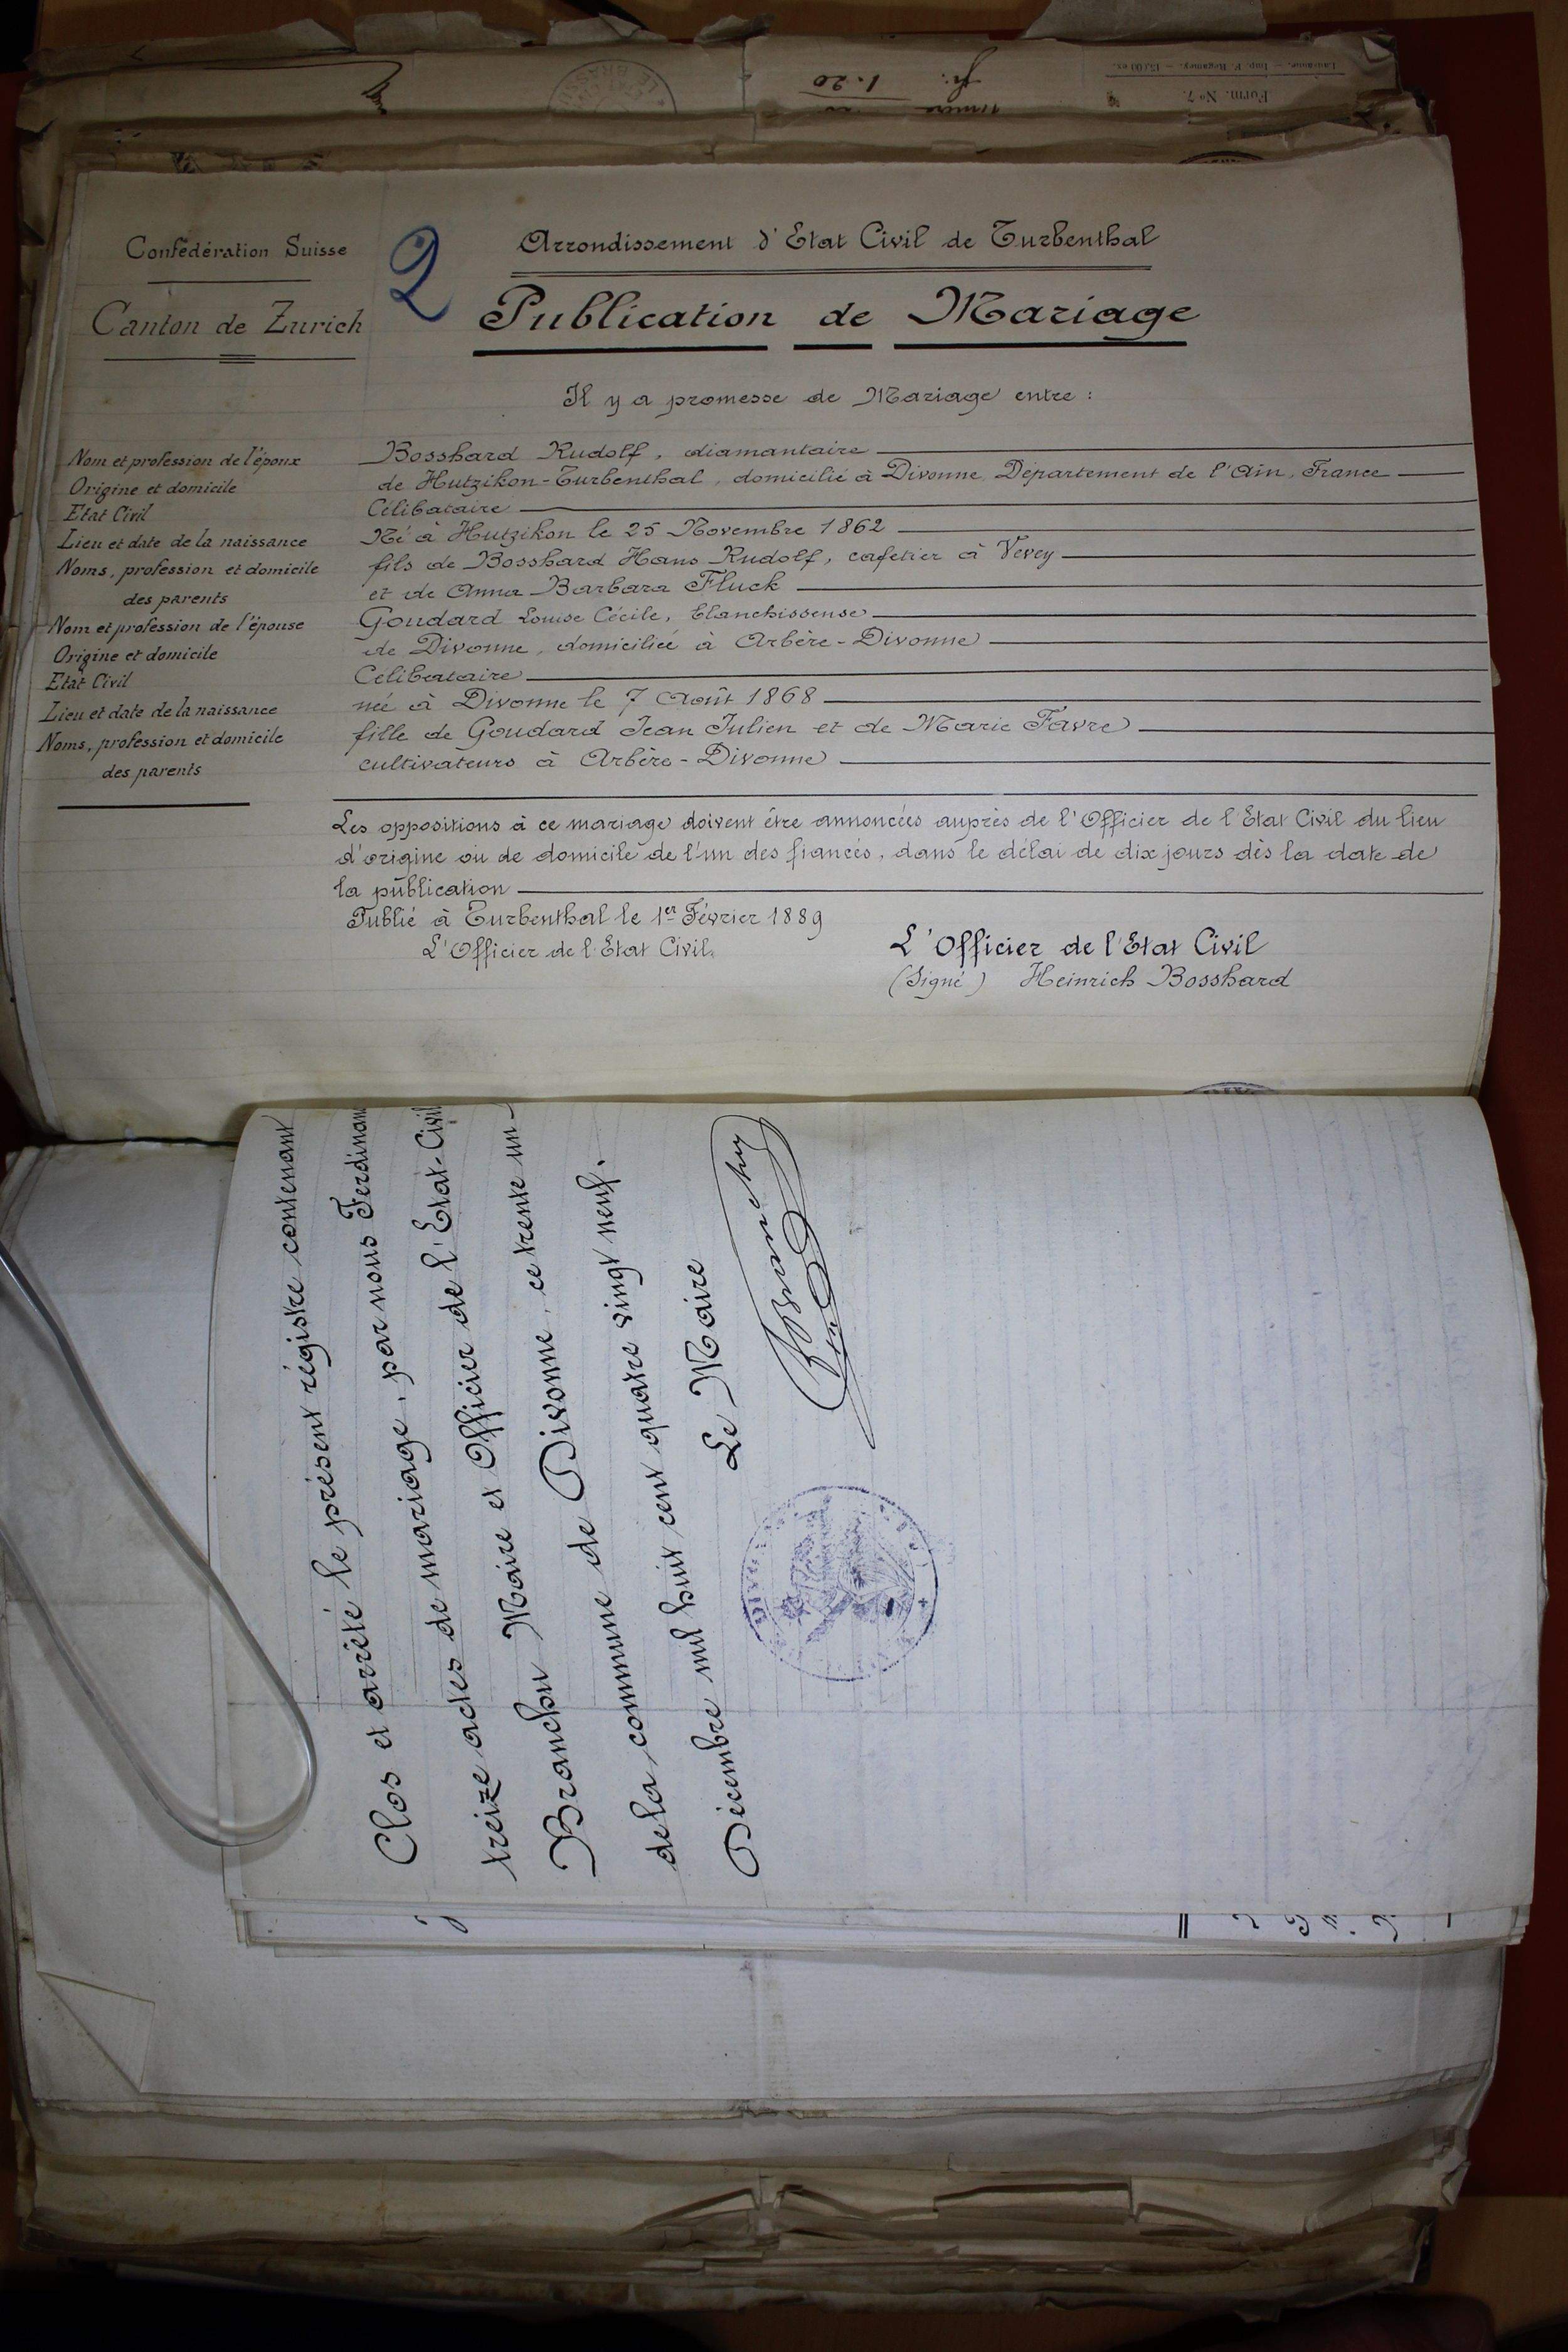 Lausanne. — Imp. F. Regamey. — 15,000 ex.
Form. No 7.
fr. 1.20
LE BRASSU
Confédération Suisse
Canton de Zurich
2
Arrondissement d'Etat Civil de Turbenthal
Publication de Mariage
Il y a promesse de Mariage entre :
Nom et profession de l'époux Bosshard Rudolf, diamantaire
Origine et domicile de Hutzikon-Turbenthal, domicilié à Divonne, Département de l'Ain, France
Etat Civil Célibataire
Lieu et date de la naissance Né à Hutzikon le 25 Novembre 1862
Noms, profession et domicile fils de Bosshard Hans Rudolf, cafetier à Vevey
des parents et de Anna Barbara Fluck
Nom et profession de l'épouse Goudard Louise Cécile, blanchisseuse
Origine et domicile de Divonne, domiciliée à Arbère-Divonne
Etat Civil Célibataire
Lieu et date de la naissance née à Divonne le 7 Août 1868
Noms, profession et domicile fille de Goudard Jean Julien et de Marie Favre
des parents cultivateurs à Arbère-Divonne
Les oppositions à ce mariage doivent être annoncées auprès de l'Officier de l'Etat Civil du lieu
d'origine ou de domicile de l'un des fiancés, dans le délai de dix jours dès la date de
la publication
Publié à Turbenthal le 1er Février 1889
L'Officier de l'Etat Civil.
L'Officier de l'Etat Civil
(Signé) Heinrich Bosshard
Clos et arrêté le présent régistre contenant
treize actes de mariage, par nous Ferdinand
Branchu Maire et Officier de l'Etat-Civil
de la commune de Divonne, ce trente un
Décembre mil huit cent quatre vingt neuf.
Le Maire
Branchu